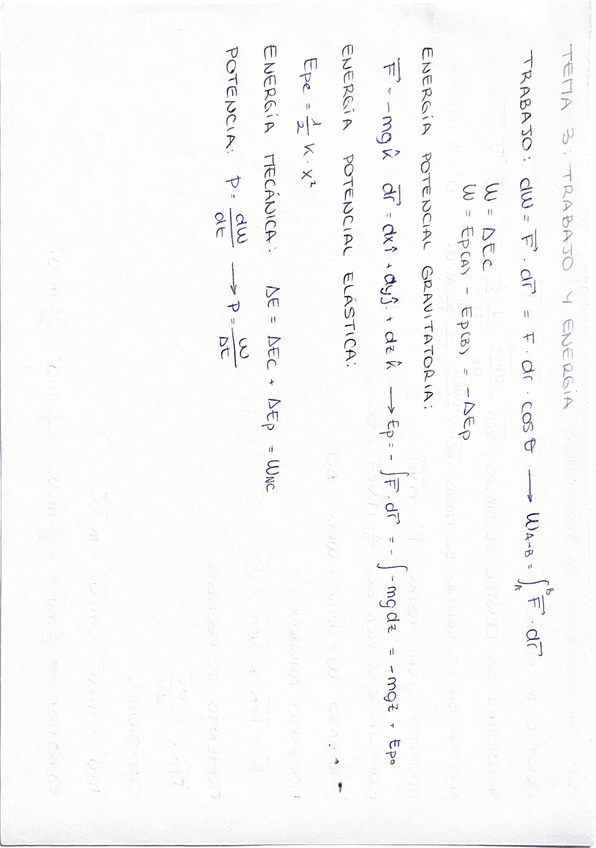 TEMA 3: TRABAJO Y ENERGÍA
TRABAJO: dW = F⃗ · dr⃗ = F · dr · cos θ ⟶ W_A-B = ∫_A^B F⃗ · dr⃗
W = ΔEc
W = Ep(A) - Ep(B) = -ΔEp
ENERGÍA POTENCIAL GRAVITATORIA:
F⃗ = -mg k̂ dr⃗ = dx î + dy ĵ + dz k̂ ⟶ Ep = - ∫ F⃗ · dr⃗ = - ∫ -mg dz = -mgz + Ep₀
ENERGÍA POTENCIAL ELÁSTICA:
Epe = 1/2 K · x²
ENERGÍA MECÁNICA: ΔE = ΔEc + ΔEp = W_NC
POTENCIA: P = dW/dt ⟶ P = W/Δt